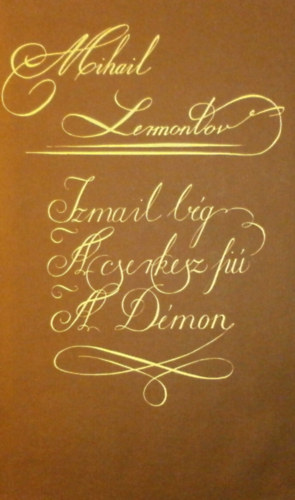 Mihail
Lermontov
Izmail bég
A cserkesz fiú
A Démon